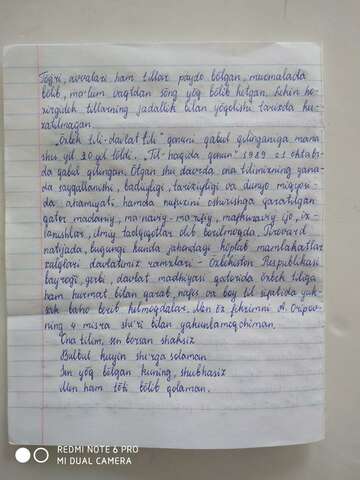 Tog'ri, avvalari ham tillar paydo bo'lgan, muomalada
bo'lib, ma'lum vaqtdan so'ng yo'q bo'lib ketgan. Lekin ho-
zirgidek tillarning jadallik bilan yo'qolishi tarixda ku-
zatilmagan.
„O'zbek tili-davlat tili" qonuni qabul qilinganiga mana
shu yil 30 yil to'ldi. „Til haqida qonun" 1989 21 oktabr-
da qabul qilingan. O'tgan shu davrda ona tilimizning yana-
da sayqallanishi, badiiyligi, tarixiyligi va dunyo miqyosi-
da ahamiyati hamda nufuzini oshirishga qaratilgan
qator madaniy, ma'naviy-ma'rifiy, mafkuraviy ijo, iz-
lanishlar, ilmiy tadqiqotlar olib borilmoqda. Pirovard
natijada, bugungi kunda jahondagi ko'plab mamlakatlar
xalqlari davlatimiz ramzlari - O'zbekiston Respublikasi
bayrog'i, gerbi, davlat madhiyasi qatorida o'zbek tiliga
ham hurmat bilan qarab, nafis va boy til sifatida yuk-
sak baho berib kelmoqdalar. Men o'z fikrimni A. Oripov-
ning 4 misra she'ri bilan yakunlamoqchiman.
Ona tilim, sen borsan shaksiz
Bulbul kuyin she'rga solaman
Sen yo'q bo'lgan kuning, shubhasiz
Men ham to'ti bo'lib qolaman.
REDMI NOTE 6 PRO
MI DUAL CAMERA